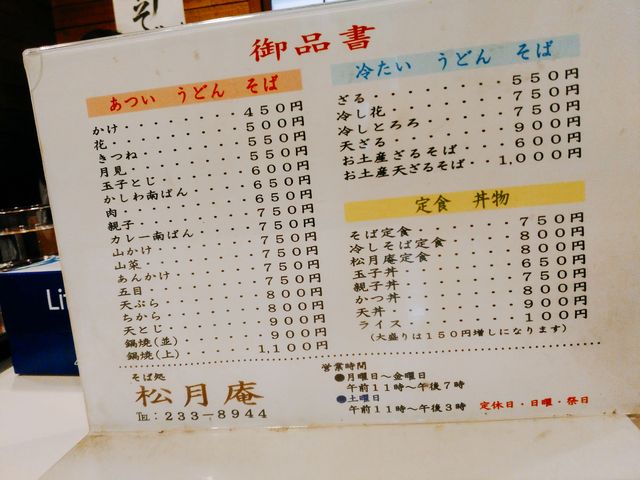 御品書
あつい うどん そば
かけ・・・・・・・450円
花・・・・・・・500円
きつね・・・・・・・550円
月見・・・・・・・550円
玉子とじ・・・・・・・600円
かしわ南ばん・・・・・・・650円
肉・・・・・・・650円
親子・・・・・・・750円
カレー南ばん・・・・・・・750円
山かけ・・・・・・・750円
山菜・・・・・・・750円
あんかけ・・・・・・・750円
五目・・・・・・・750円
天ぷら・・・・・・・800円
ちから・・・・・・・800円
天とじ・・・・・・・900円
鍋焼(並)・・・・・・・900円
鍋焼(上)・・・・・・・1,100円
冷たい うどん そば
ざる・・・・・・・550円
冷し花・・・・・・・750円
冷しとろろ・・・・・・・750円
天ざる・・・・・・・900円
お土産ざるそば・・・・600円
お土産天ざるそば・・1,000円
定食 丼物
そば定食・・・・・・・750円
冷しそば定食・・・・・800円
松月庵定食・・・・・・800円
玉子丼・・・・・・・650円
親子丼・・・・・・・750円
かつ丼・・・・・・・800円
天丼・・・・・・・900円
ライス・・・・・・・100円
(大盛りは150円増しになります)
そば処
松月庵
℡:233-8944
営業時間
●月曜日〜金曜日
午前11時〜午後7時
●土曜日
午前11時〜午後3時
定休日・日曜・祭日
Li